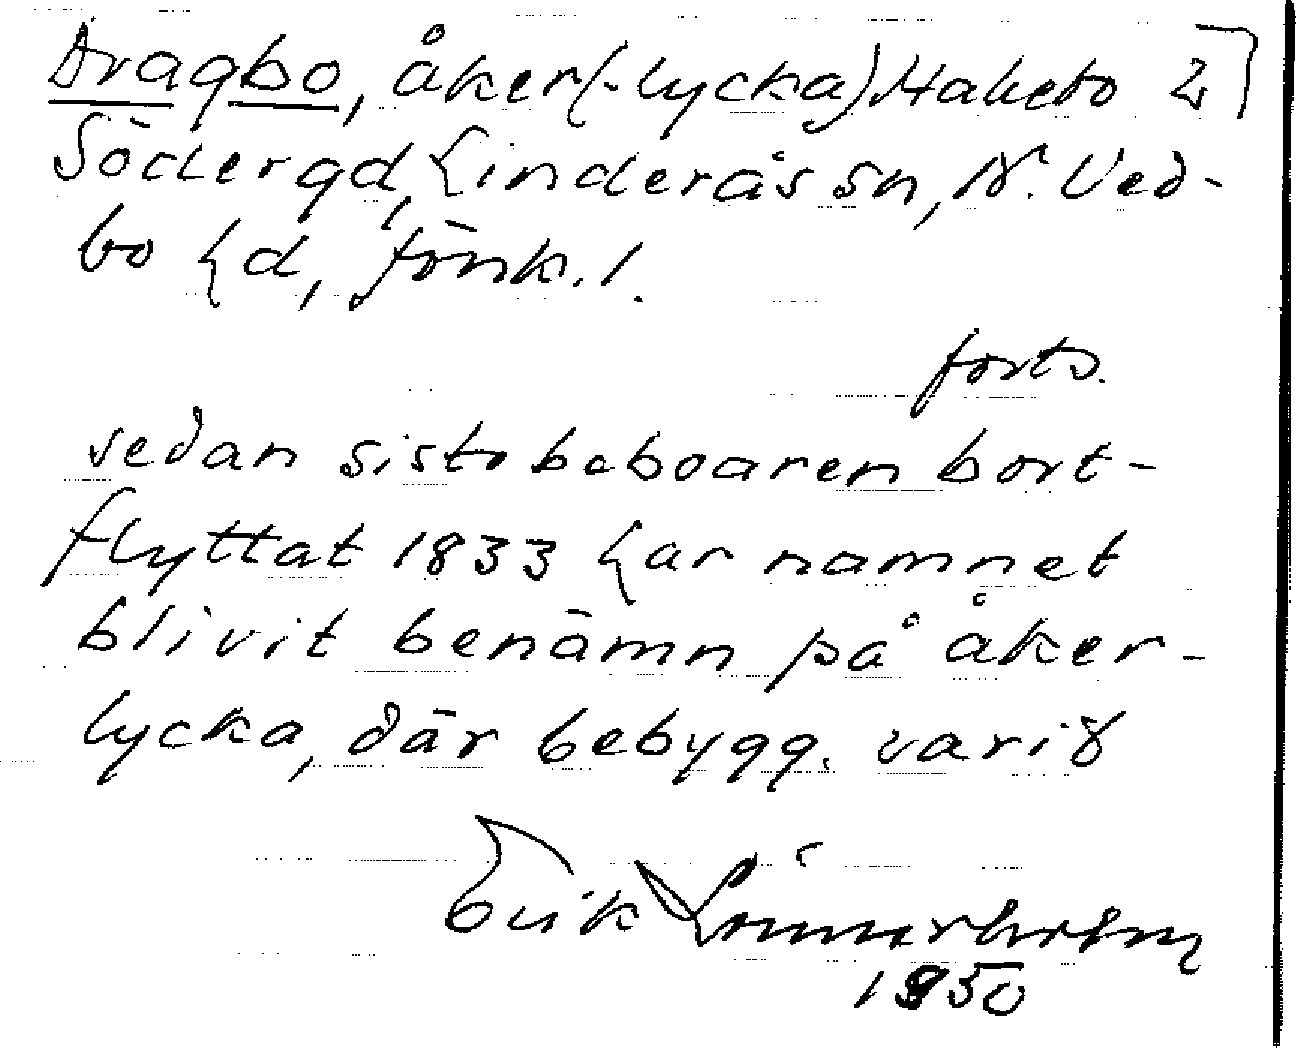 Dragbo, åker(-lycka) Haketo 2
Södergd, Linderås sn, N. Ved-
bo hd, Jönk. l.
forts.
sedan sista beboaren bort-
flyttat 1833 har namnet
blivit benämn på åker-
lycka, där bebygg. varit
Erik Lönnerholm
1950